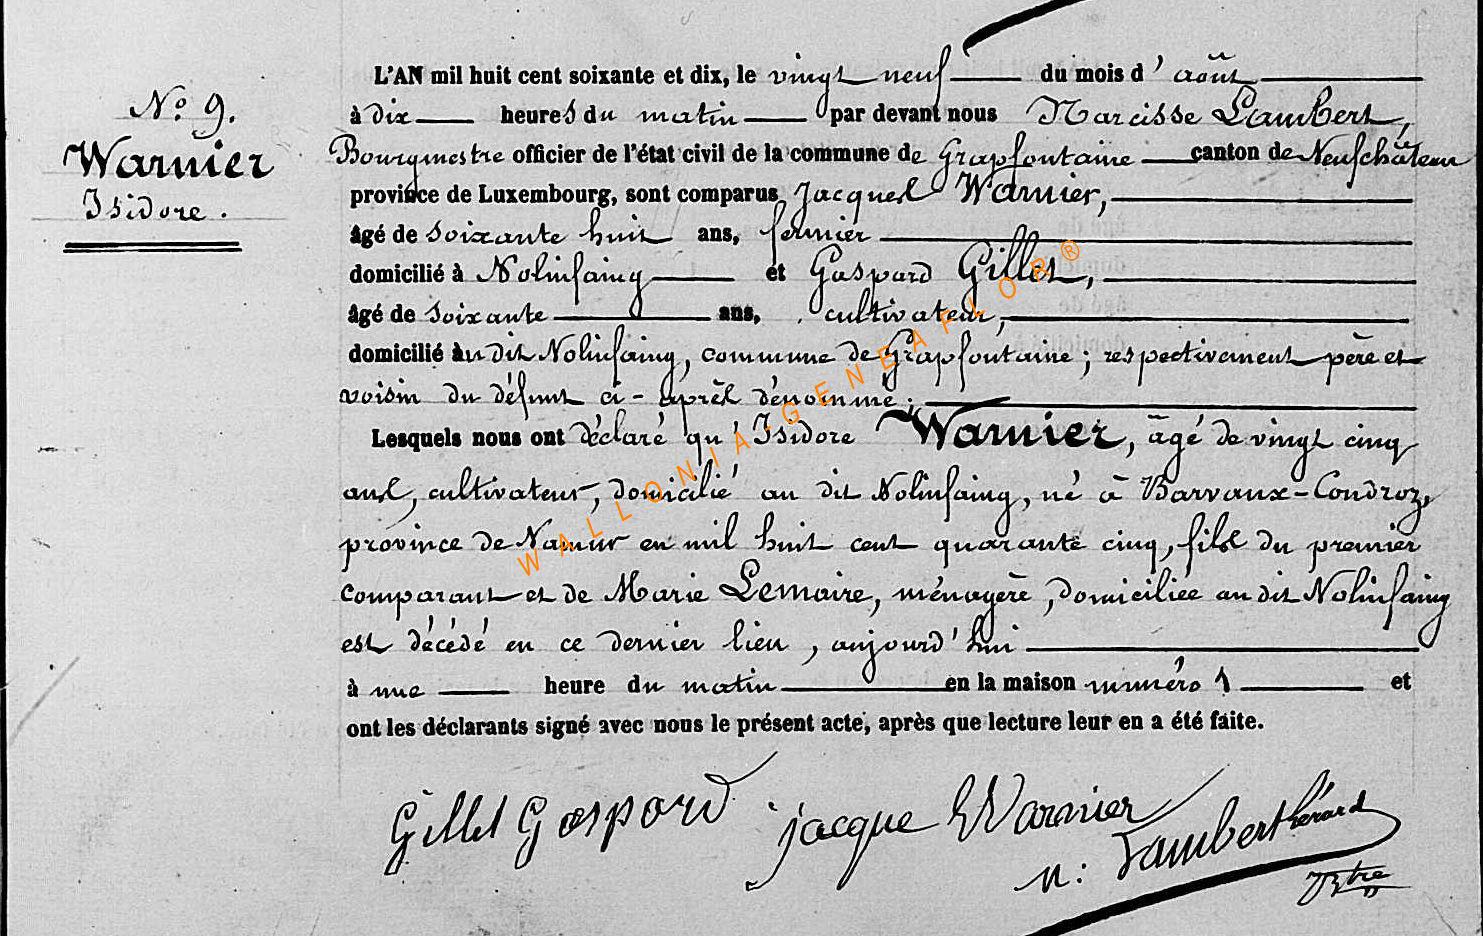 L'AN mil huit cent soixante et dix, le vingt neuf du mois d'août
N° 9. à dix heures du matin par devant nous Narcisse Lambert,
Warnier Bourgmestre officier de l'état civil de la commune de Grapfontaine canton de Neufchâteau
Isidore. province de Luxembourg, sont comparus Jacques Warnier,
âgé de soixante huit ans, fermier
domicilié à Nolinfaing et Gaspard Gilles,
âgé de soixante ans, cultivateur,
domicilié au dit Nolinfaing, commune de Grapfontaine ; respectivement père et
voisin du défunt ci-après dénommé ;
Lesquels nous ont déclaré qu'Isidore Warnier, âgé de vingt cinq
ans, cultivateur, domicilié au dit Nolinfaing, né à Barvaux-Condroz,
province de Namur en mil huit cent quarante cinq, fils du premier
comparant et de Marie Lemaire, ménagère, domiciliée au dit Nolinfaing
est décédé en ce dernier lieu, aujourd'hui
à une heure du matin en la maison numéro 1 et
ont les déclarants signé avec nous le présent acte, après que lecture leur en a été faite.
Gilles Gaspard jacque Warnier n: Lambert hérard
WALLONIA-GENEAFLOR®